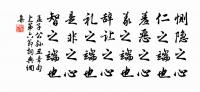 恻隐之心
仁之端也
羞恶之心
義之端也
辞讓之心
礼之端也
是非之心
智之端也
孟子公孙丑章句
上第六节